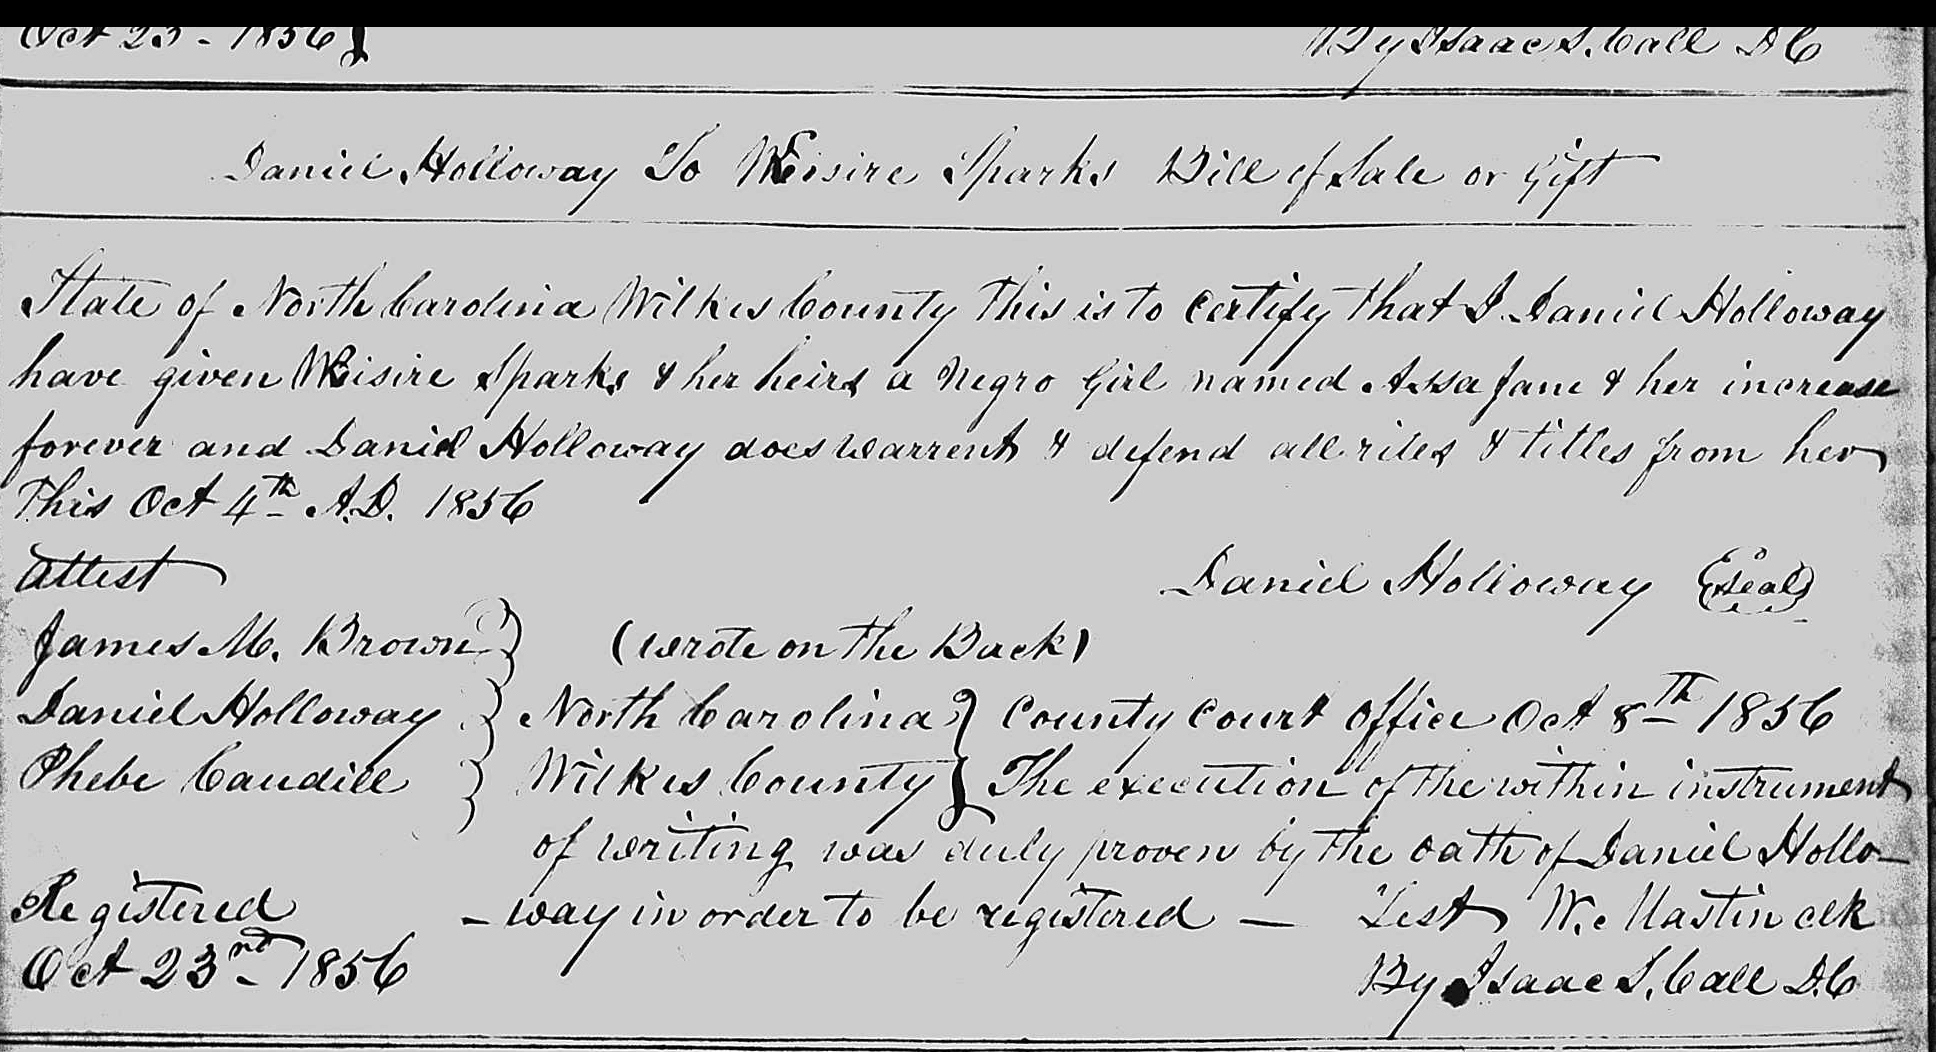 Oct 23 - 1856
By Isaac S. Call D C
Daniel Holloway To Sparks Bill of Sale or Gift
State of North Carolina Wilkes County This is to certify that I Daniel Holloway
have given Sparks & her heirs a Negro Girl named Assa Jane & her increase
forever and Daniel Holloway does warrent & defend all rites & titles from her
This Oct 4th A.D. 1856
Attest
Daniel Holloway (Seal)
James M. Brown } (wrote on the Back)
Daniel Holloway } North Carolina } County Court office Oct 8th 1856
Phebe Caudill } Wilkes County } The execution of the within instrument
of writing was duly proven by the oath of Daniel Hollo-
Registered - way in order to be registered — Test W. Mastin clk
Oct 23rd 1856 By Isaac S. Call D.C